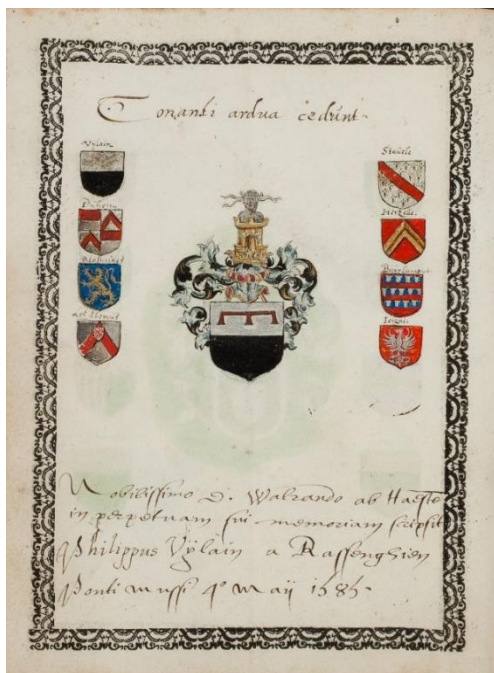 Conanti ardua cedunt.
Vylain
Stavele
Herzele
Nobilissimo D. Walrando ab Haeste
in perpetuam sui memoriam scripsit
Philippus Vylain a Rassenghien
Ponti mussi 4o Maij 1585.